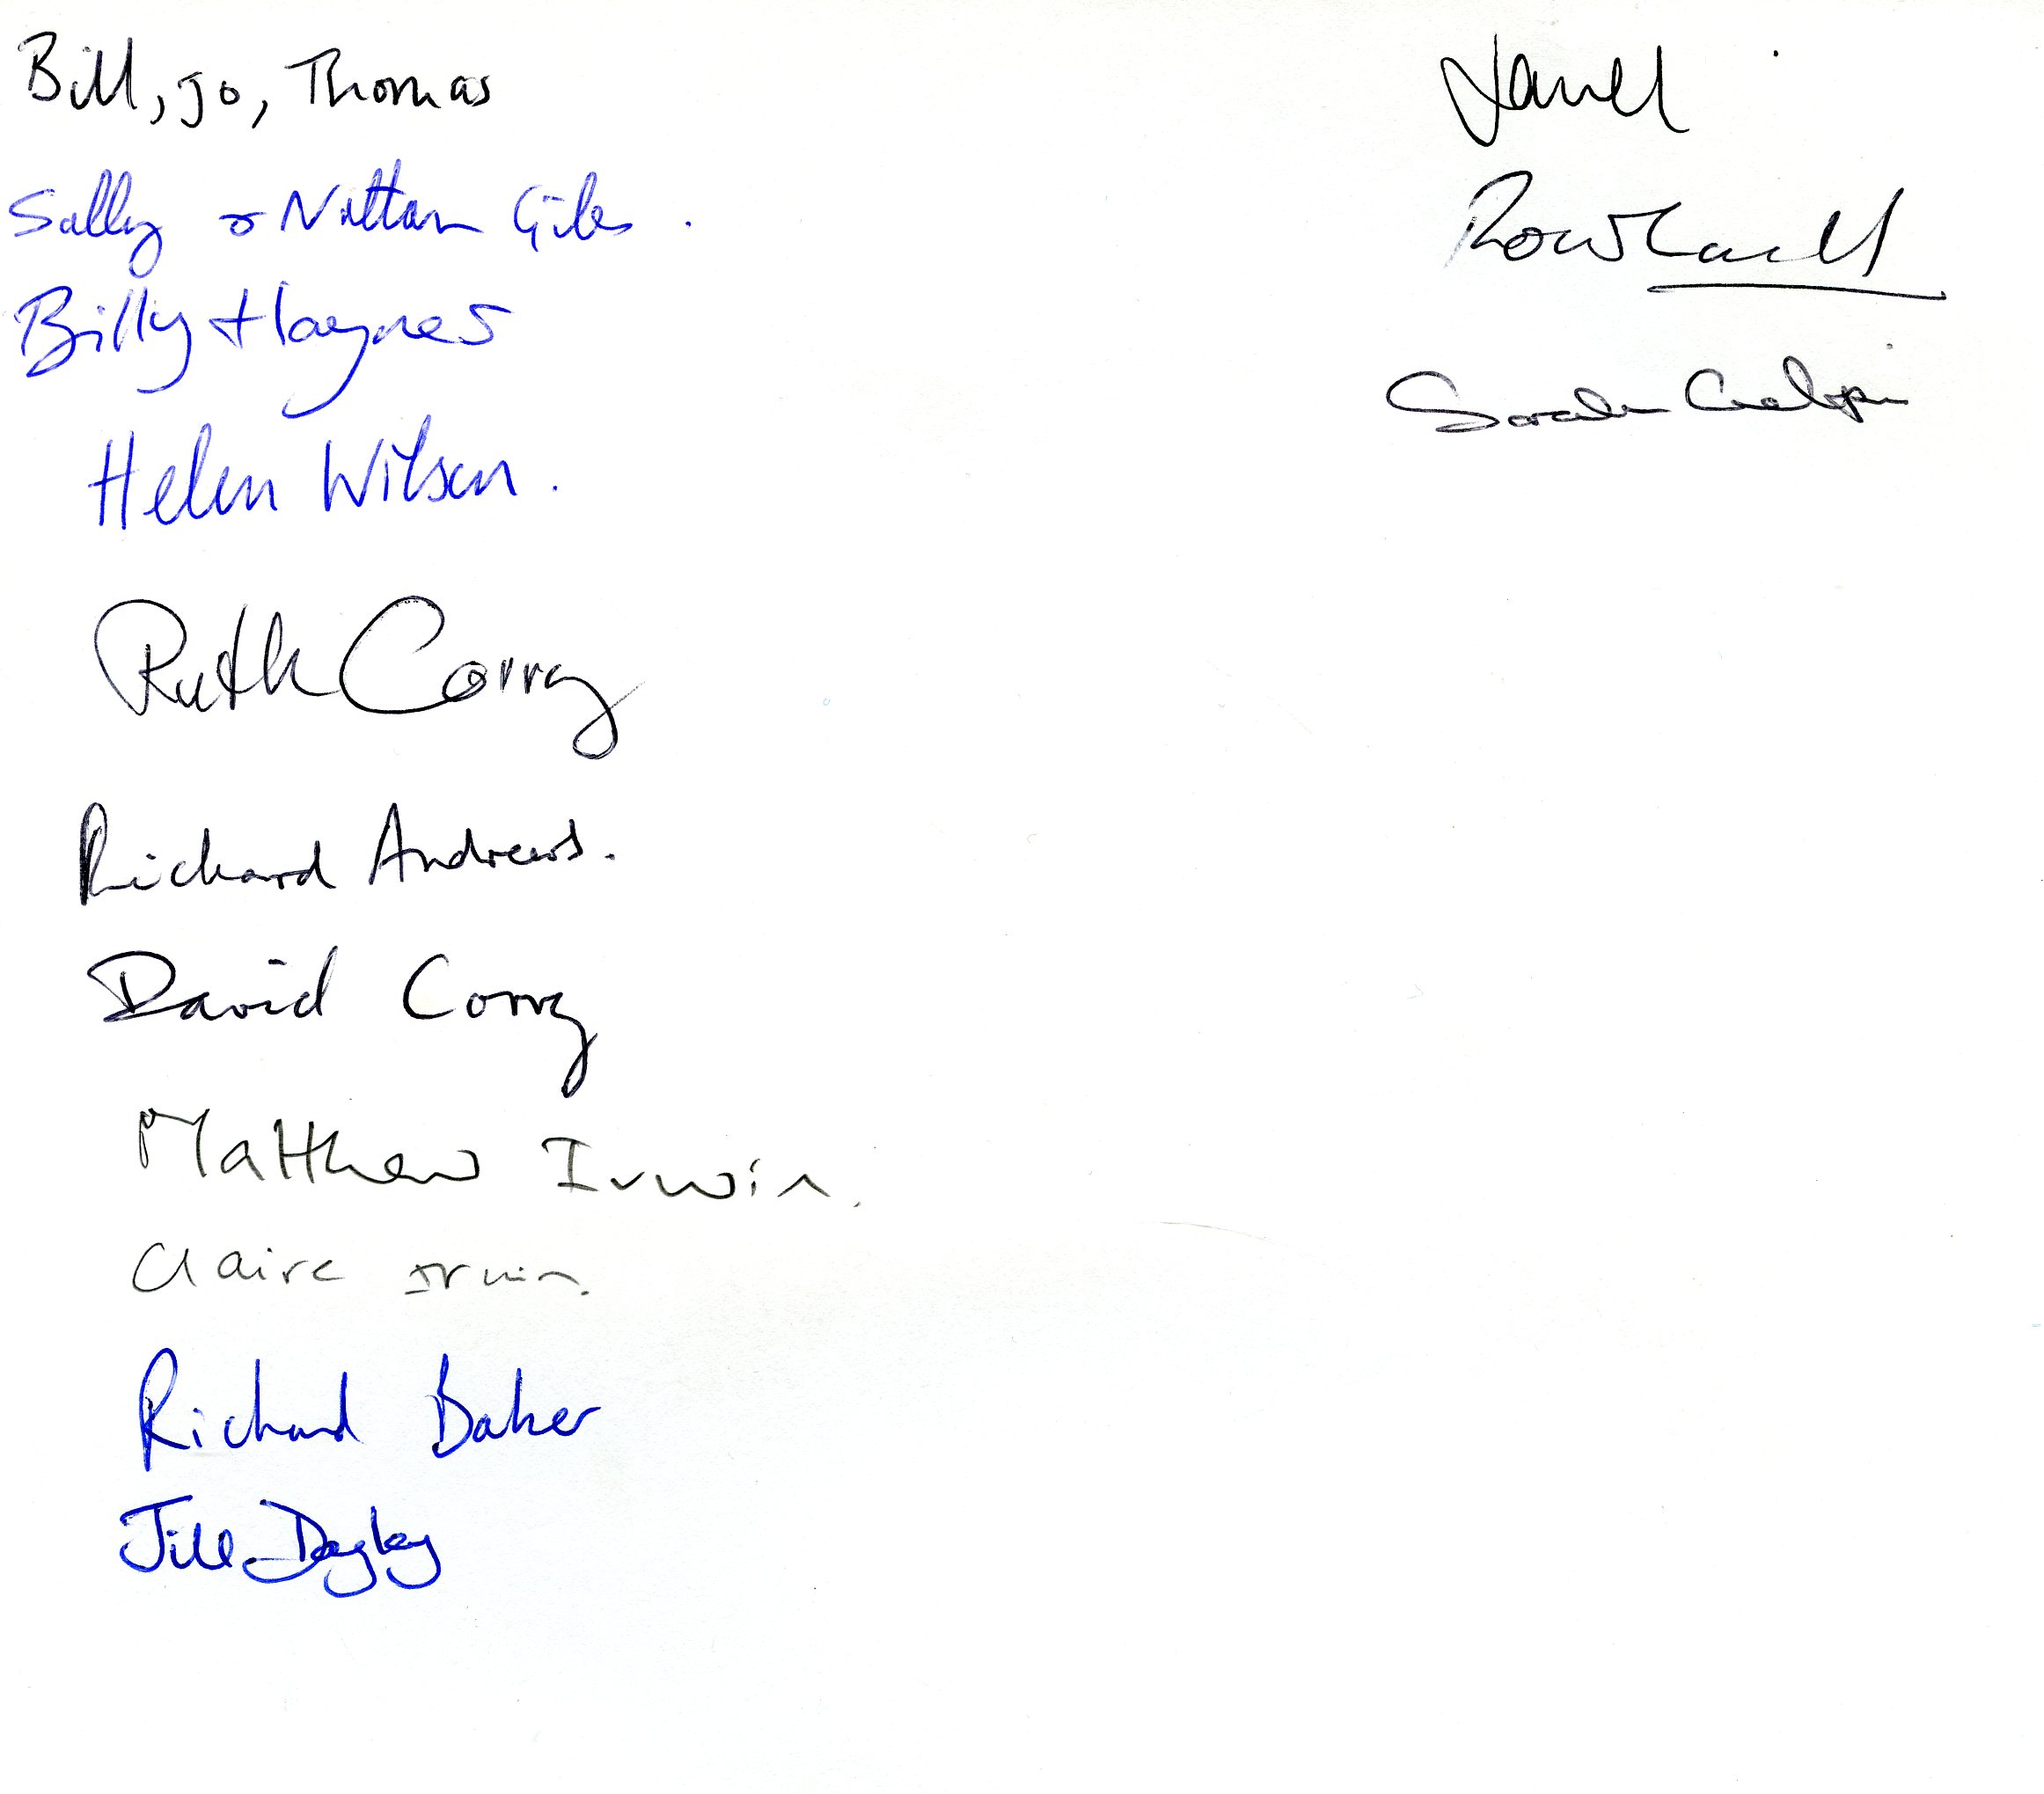 Bill, Jo, Thomas
Sally & Nathan Giles.
Billy Haynes
Helen Wilson.
Ruth Corry
Richard Andrews.
David Corry
Matthew Irwin.
Claire Irwin.
Richard Baker
Jill Dagley
Sarah